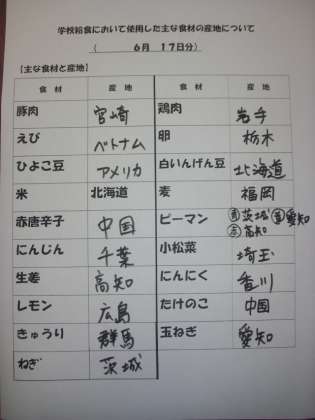 学校給食において使用した主な食材の産地について
(　6月　17日分)
【主な食材と産地】
食材　産地　食材　産地
豚肉　宮崎　鶏肉　岩手
えび　ベトナム　卵　栃木
ひよこ豆　アメリカ　白いんげん豆　北海道
米　北海道　麦　福岡
赤唐辛子　中国　ピーマン　茨城　愛知
高知
にんじん　千葉　小松菜　埼玉
生姜　高知　にんにく　香川
レモン　広島　たけのこ　中国
きゅうり　群馬　玉ねぎ　愛知
ねぎ　茨城